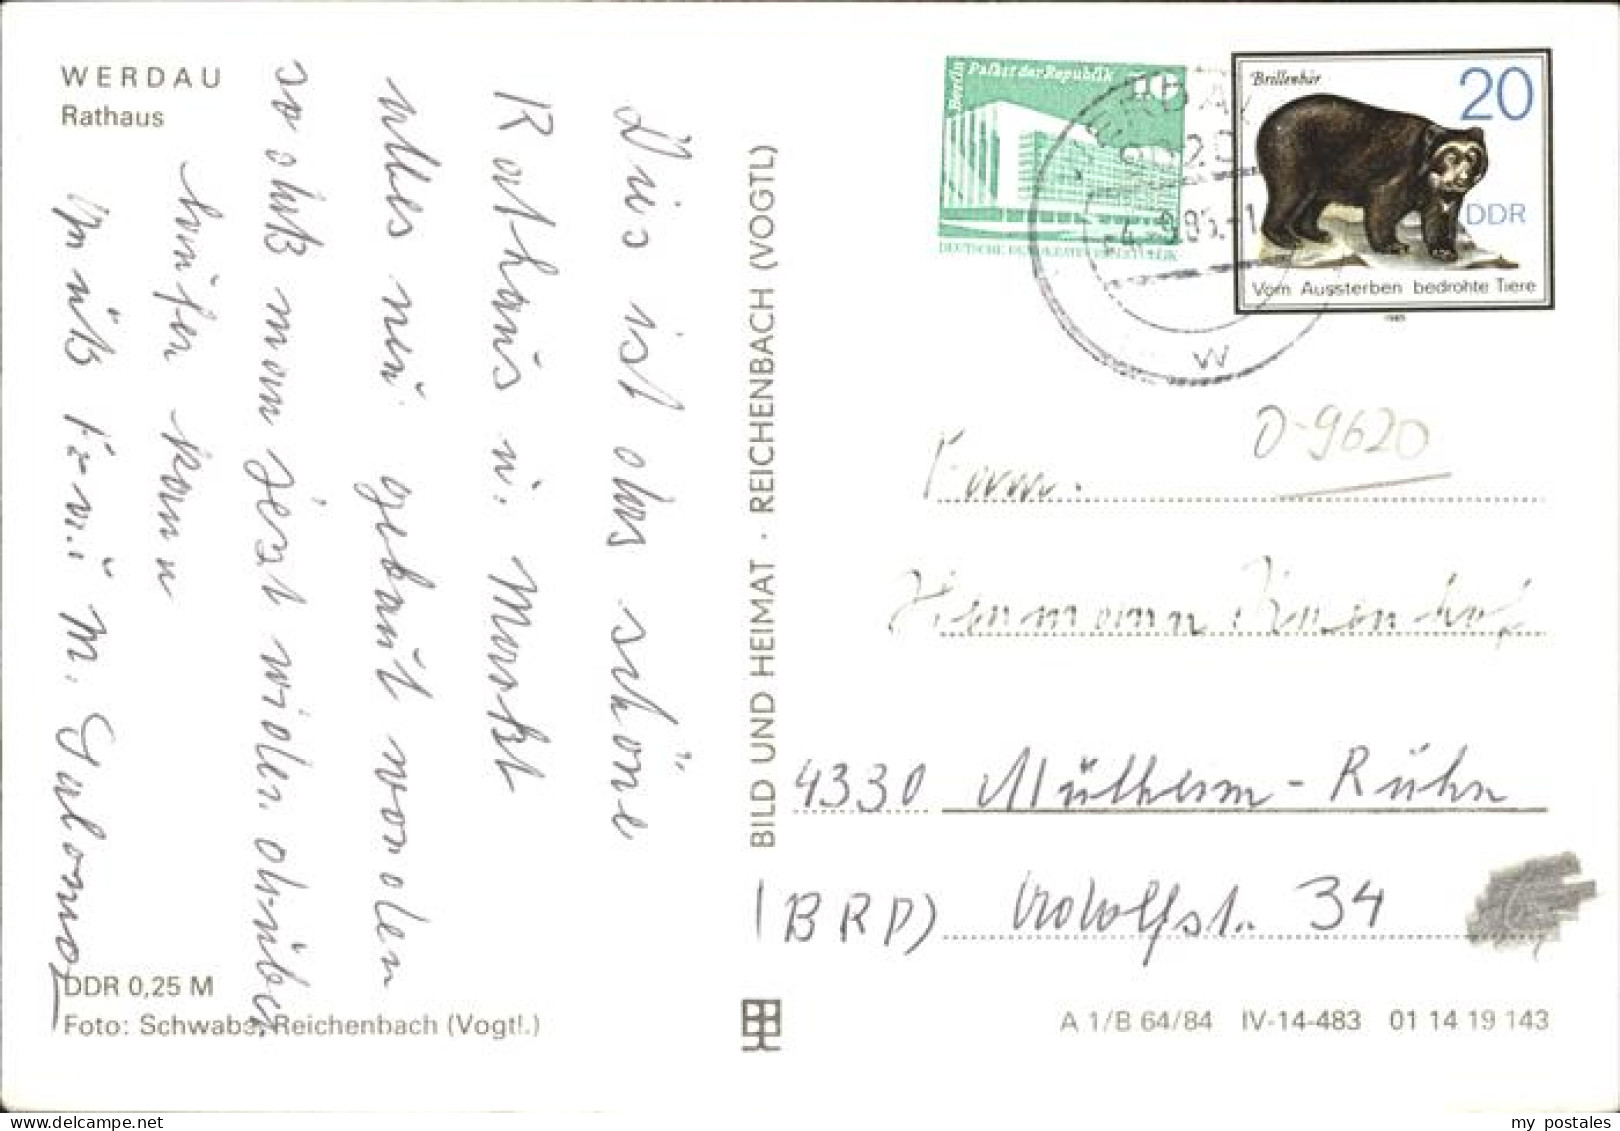 WERDAU
Rathaus
Dies ist das schöne
Rathaus u. Markt
alles neu gebaut worden
so daß man jezt wieder darüber
laufen kann
Es grüßt
M.
DDR 0,25 M
Foto: Schwabe, Reichenbach (Vogtl.)
BILD UND HEIMAT · REICHENBACH (VOGTL)
Berlin Palast der Republik
10
DEUTSCHE DEMOKRATISCHE REPUBLIK
WERDAU
w
Brillenbär
20
DDR
Vom Aussterben bedrohte Tiere
1985
O-9620
Fam.
Hermann
4330 Mülheim-Rühr
(BRD) Adolfst. 34
A 1/B 64/84 IV-14-483 01 14 19 143
my postales